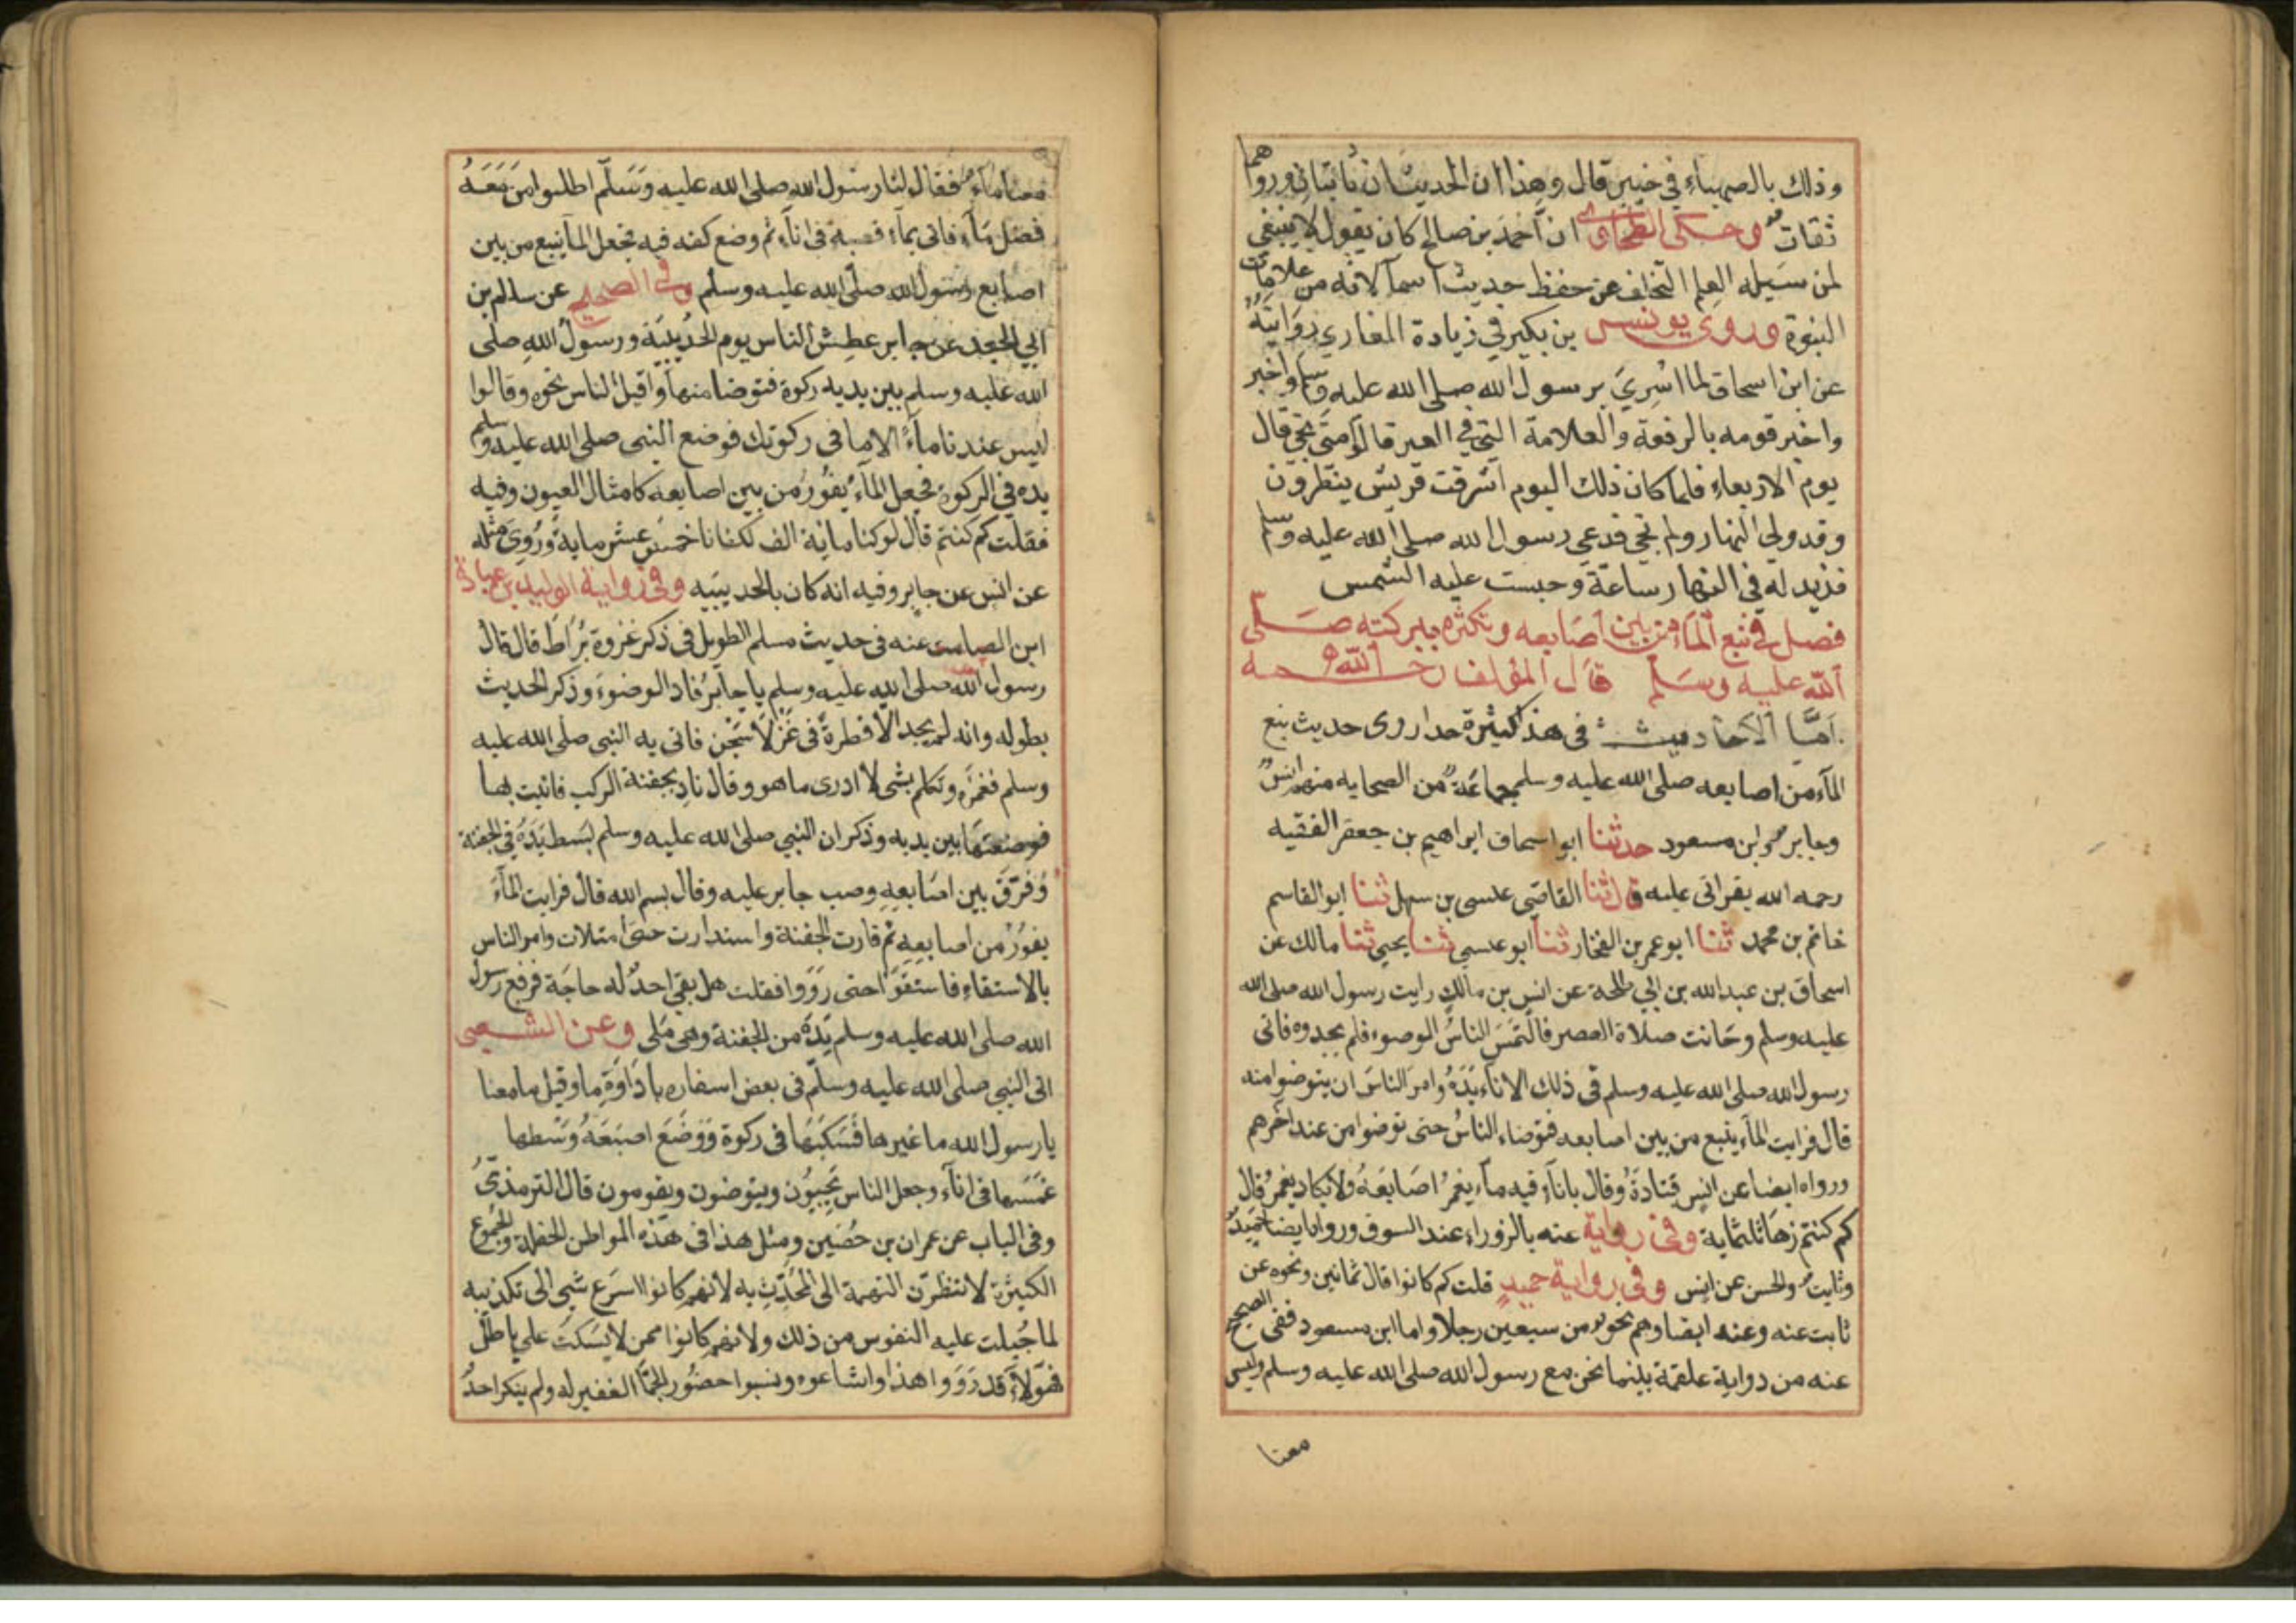 وذلك بالصهباء في خيبر قال وهذا ان الحديثان ثابتان ورواهما
ثقات وحكى الطحاوي ان أحمد بن صالح كان يقول لا ينبغي
لمن سبيله العلم التخلف عن حفظ حديث اسما لانه من علامات
النبوة وروى يونس بن بكير في زيادة المغازي روايته
عن ابن اسحاق لما اسري برسول الله صلى الله عليه وسلم واخبر
واخبر قومه بالرفعة والعلامة التي في العير قالوا متى تجي قال
يوم الاربعاء فلما كان ذلك اليوم اشرقت قريش ينظرون
وقد ولي النهار ولم تجي فدعي رسول الله صلى الله عليه وسلم
فزيد له في النهار ساعة وحبست عليه الشمس
فصل في نبع الماء من بين أصابعه وتكثره ببركته صلى
الله عليه وسلم قال المؤلف رحمه الله
اما الاحاديث في هذا كثيرة جدا روى حديث نبع
الماء من اصابعه صلى الله عليه وسلم جماعة من الصحابه منهم انس
وجابر وابن مسعود حدثنا ابو اسحاق ابراهيم بن جعفر الفقيه
رحمه الله بقراتى عليه قال ثنا القاضى عيسى بن سهل ثنا ابو القاسم
خاتم بن محمد ثنا ابو عمر بن الفخار ثنا ابو عيسي ثنا يحيى ثنا مالك عن
اسحاق بن عبد الله بن ابي طلحة عن انس بن مالك رايت رسول الله صلى الله
عليه وسلم وحانت صلاة العصر فالتمس الناس الوضوء فلم يجدوه فاتى
رسول الله صلى الله عليه وسلم في ذلك الاناء يده وامر الناس ان يتوضوا منه
قال فرايت الماء ينبع من بين اصابعه فتوضاء الناس حتى توضوا من عند اخرهم
ورواه ايضا عن انس قتادة وقال باناء فيه ماء يغمر اصابعه ولا يكاد يغمر قال
كم كنتم زها ثلثماية وفي رواية عنه بالزوراء عند السوق ورواه ايضا حميد
وثابت والحسن عن انس وفي رواية حميد قلت كم كانوا قال ثمانين ونحوه عن
ثابت عنه وعنه ايضا وهم نحو من سبعين رجلا واما ابن مسعود ففى الصحيح
عنه من رواية علقمة بينما نحن مع رسول الله صلى الله عليه وسلم وليس
معنا
معنا ماء فقال لنا رسول الله صلى الله عليه وسلم اطلبوا من معه
فضل ماء فاتى بماء فصبه في اناء ثم وضع كفه فيه فجعل الما ينبع من بين
اصابع رسول الله صلى الله عليه وسلم وفي الصحيح عن سالم بن
ابي الجعد عن جابر عطش الناس يوم الحديبية ورسول الله صلى
الله عليه وسلم بين يديه ركوة فتوضا منها واقبل الناس نحوه وقالوا
ليس عندنا ماء الا ما في ركوتك فوضع النبى صلى الله عليه وسلم
يده في الركوة فجعل الماء يفور من بين اصابعه كامثال العيون وفيه
فقلت كم كنتم قال لو كنا ماية الف لكفانا خمس عشر ماية وروي مثله
عن انس عن جابر وفيه انه كان بالحديبيه وفي رواية الوليد بن عبادة
ابن الصامت عنه فى حديث مسلم الطويل فى ذكر غزوة براط قال قال
رسول الله صلى الله عليه وسلم يا جابر ناد الوضوء وذكر الحديث
بطوله وانه لم يجد الا قطرة في غزلا شجن فاتى به النبى صلى الله عليه
وسلم فغمزه وتكلم بشى لا ادرى ما هو وقال ناد بجفنة الركب فاتيت بها
فوضعتها بين يديه وذكر ان النبي صلى الله عليه وسلم بسط يده في الجفنة
وفرق بين اصابعه وصب جابر عليه وقال بسم الله قال فرايت الماء
يفور من اصابعه ثم فارت الجفنة واستدارت حتى امتلات وامر الناس
بالاستقاء فاستقوا حتى رووا فقلت هل بقي احد له حاجة فرفع رسول
الله صلى الله عليه وسلم يده من الجفنة وهى ملى وعن الشعبى
اتى النبي صلى الله عليه وسلم فى بعض اسفاره باداوة ما وقيل ما معنا
يا رسول الله ما غيرها فسكبها فى ركوة ووضع اصبعه وسطها
غمسها في اناء وجعل الناس يجيبون ويتوضون ويقومون قال الترمذي
وفى الباب عن عمران بن حضين ومثل هذا فى هذه المواطن الحفلة والجموع
الكثيرة لا تنظرن التهمة الى المحدث به لانهم كانوا اسرع شى الى تكذيبه
لما جبلت عليه النفوس من ذلك ولانهم كانوا ممن لا يسكت علي باطل
فهولاء قد رووا هذا واشاعوه ونسبوا حضور الجماء الغفير له ولم ينكر احد